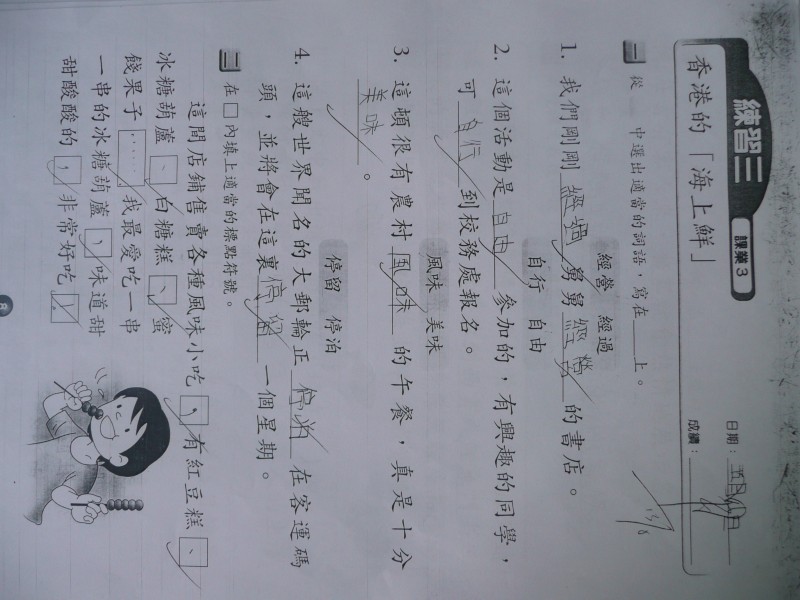 練習三 課業3
香港的「海上鮮」
日期：
成績：
一 從 中選出適當的詞語，寫在＿＿上。
經營 經過
1. 我們剛剛 經過 舅舅 經營 的書店。
自行 自由
2. 這個活動是 自由 參加的，有興趣的同學，
可 自行 到校務處報名。
風味 美味
3. 這頓很有農村 風味 的午餐，真是十分
美味 。
停留 停泊
4. 這艘世界聞名的大郵輪正 停泊 在客運碼
頭，並將會在這裏 停留 一個星期。
二 在□內填上適當的標點符號。
這間店鋪售賣各種風味小吃，有紅豆糕、
冰糖葫蘆、白糖糕、蜜
餞果子……我最愛吃一串
一串的冰糖葫蘆，味道甜
甜酸酸的，非常好吃！
8